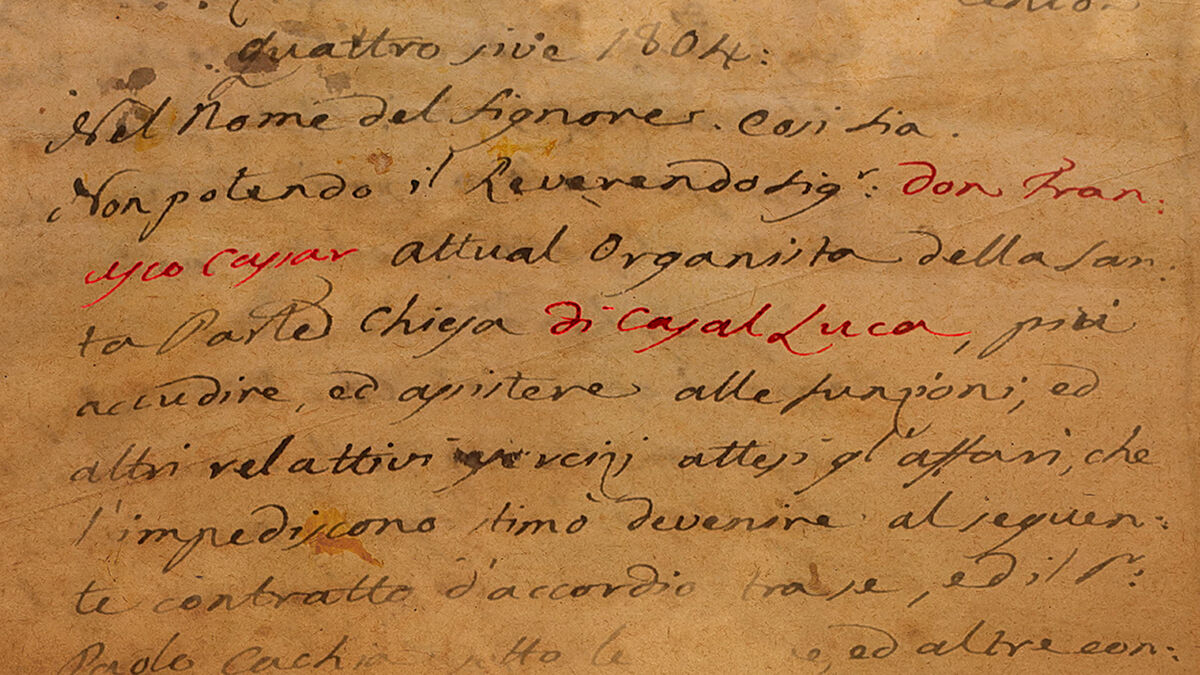 quattro sive 1804:
Nel Nome del Signore. Cosi sia.
Non potendo il Reverendo Sigr: don Fran:
cesco Cassar attual Organista della San:
ta Parle Chiesa di Casal Luca, più
accudire, ed assistere alle funzioni, ed
altri relattivi esercizj attesi gl'affari, che
l'impediscono stimò devenire al seguen:
te contratto d'accordio tra se, ed il Sr:
Paolo Cachia sotto le ed altre con: